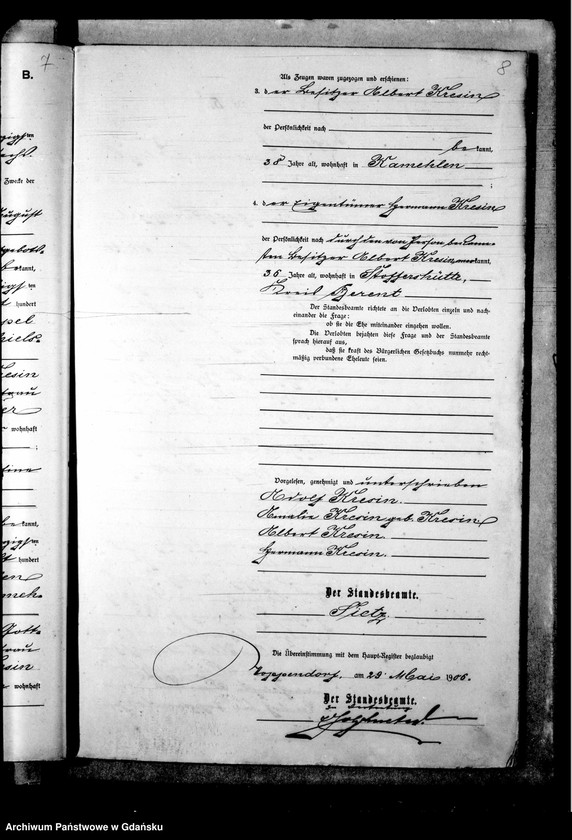 B.
7
8
Zwecke der
August
kannt,
hundert
wohnhaft
kannt,
hundert
wohnhaft
Als Zeugen waren zugezogen und erschienen:
3. der Besitzer Albert Kresin
der Persönlichkeit nach
be kannt,
38 Jahre alt, wohnhaft in Kamehlen
;
4. der Eigentümer Hermann Kresin
der Persönlichkeit nach durch den von Person bekann-
ten Besitzer Albert Kresin anerkannt,
36 Jahre alt, wohnhaft in Stoffershütte,
Kreis Berent
Der Standesbeamte richtete an die Verlobten einzeln und nach-
einander die Frage:
ob sie die Ehe miteinander eingehen wollen.
Die Verlobten bejahten diese Frage und der Standesbeamte
sprach hierauf aus,
daß sie kraft des Bürgerlichen Gesetzbuchs nunmehr recht-
mäßig verbundene Eheleute seien.
Vorgelesen, genehmigt und unterschrieben
Adolf Kresin.
Amalie Kresin geb. Kresin
Albert Kresin.
Hermann Kresin.
Der Standesbeamte.
Tietz.
Die Übereinstimmung mit dem Haupt-Register beglaubigt
am 29. Mai 1906.
Der Standesbeamte.
Archiwum Państwowe w Gdańsku